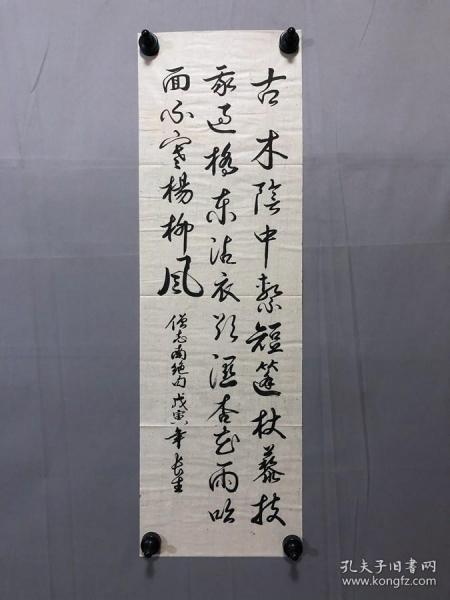 古木陰中繫短篷杖藜扶
我過橋東沾衣欲濕杏花雨吹
面不寒楊柳風
僧志南絕句 戊寅年 長生
孔夫子旧书网
www.kongfz.com